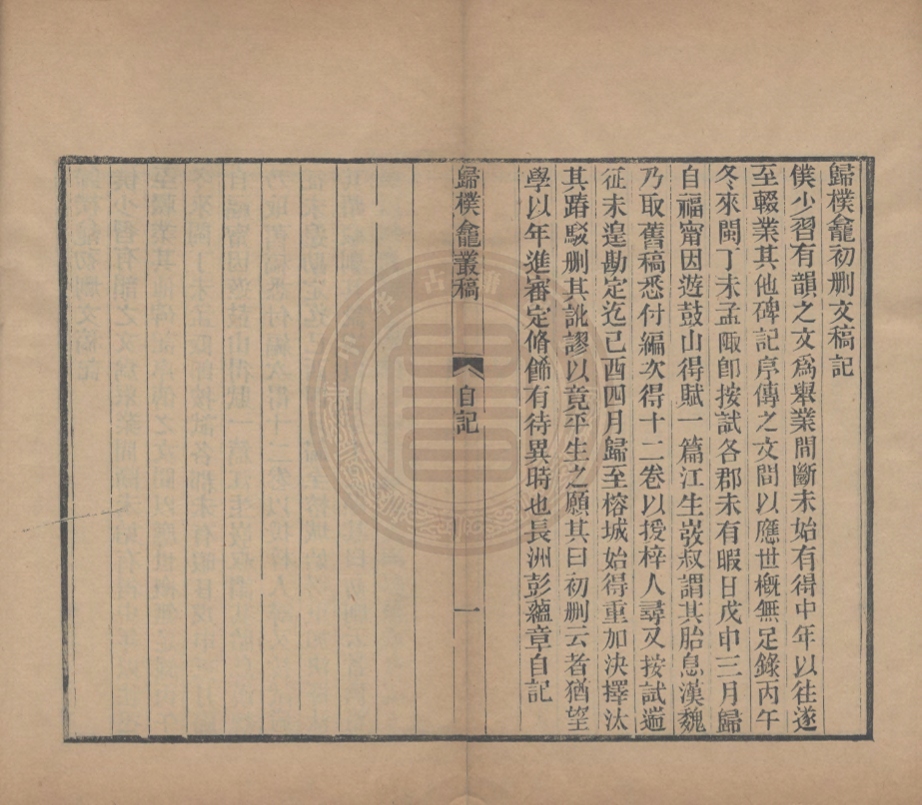 歸樸龕初删文稿記
僕少習有韻之文爲舉業間斷未始有得中年以往遂
至輟業其他碑記序傳之文間以應世槪無足錄丙午
冬來閩丁未孟陬卽按試各郡未有暇日戊申三月歸
自福甯因遊鼓山得賦一篇江生弢叔謂其胎息漢魏
乃取舊稿悉付編次得十二卷以授梓人尋又按試遄
征未遑勘定迄己酉四月歸至榕城始得重加決擇汰
其踳駁删其訛謬以竟平生之願其曰初删云者猶望
學以年進審定脩飾有待異時也長洲彭蘊章自記
歸樸龕叢稿
自記
一